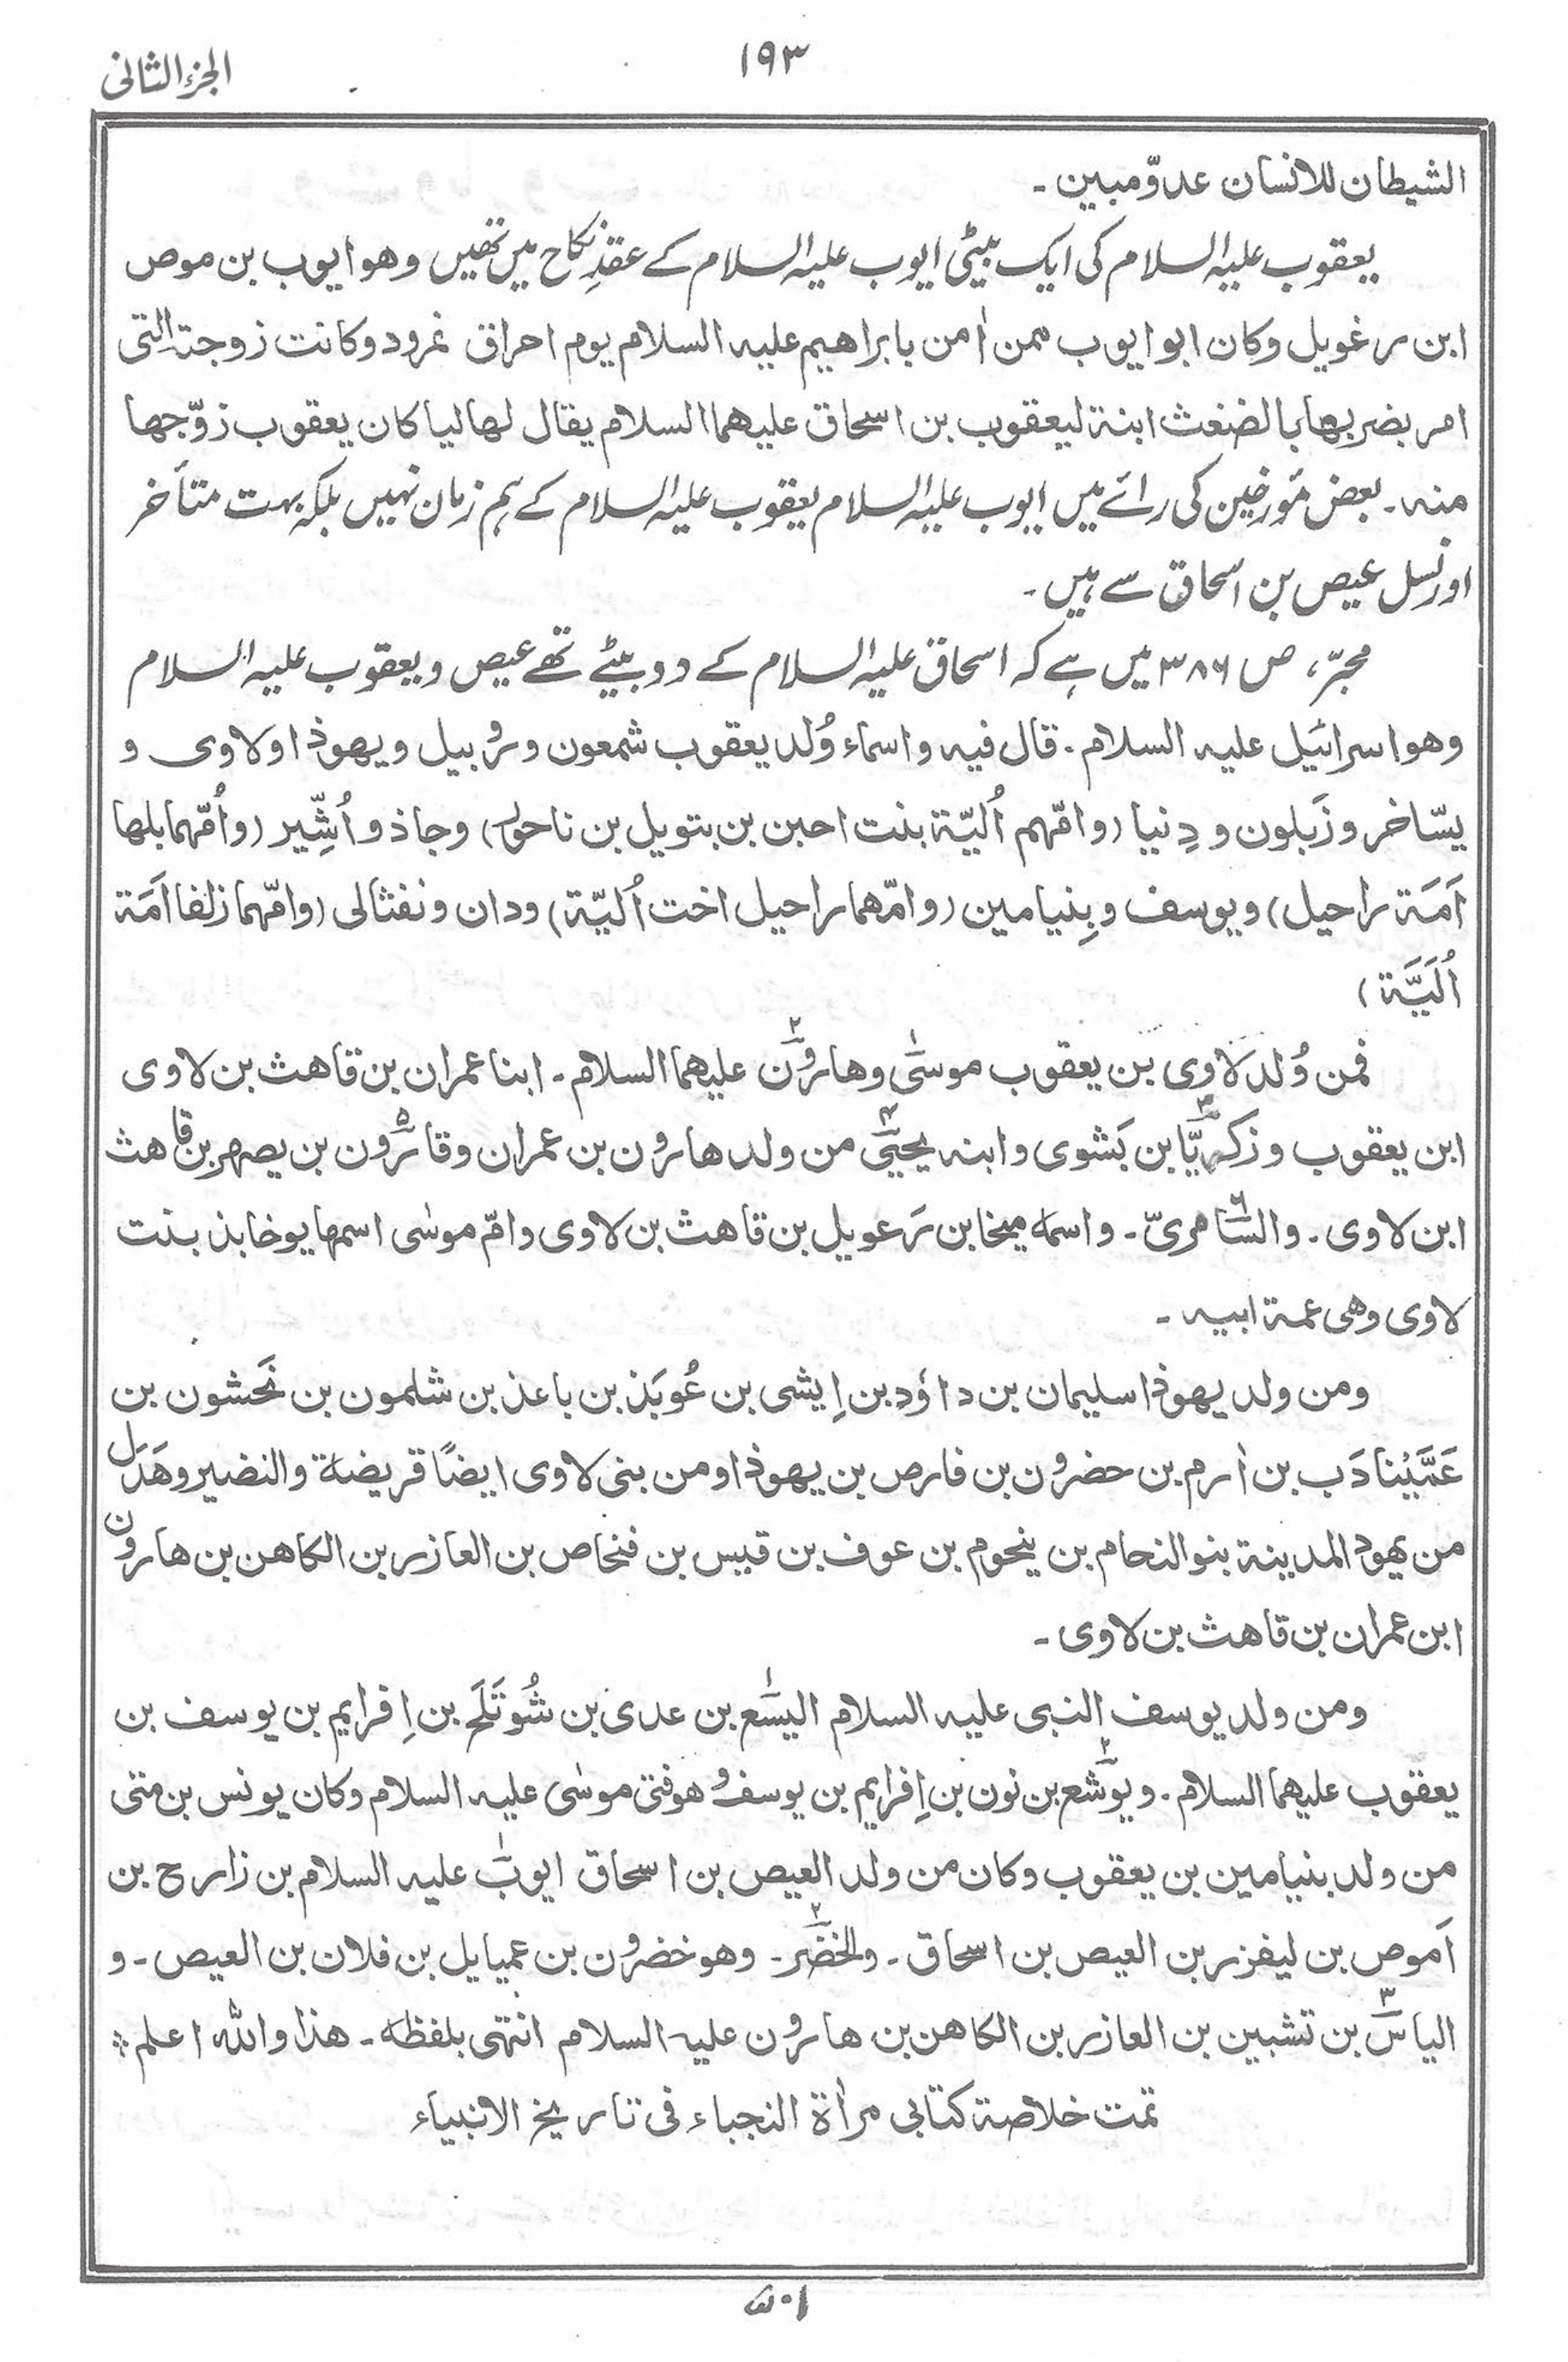 ۱۹۳
الجزء الثانی
الشیطان للانسان عدوّ مبین ۔
یعقوب علیہ السلام کی ایک بیٹی ایوب علیہ السلام کے عقدِ نکاح میں تھیں وھو ایوب بن موص
ابن رغویل وکان ابو ایوب ممن اٰمن بابراھیم علیہ السلام یوم احراق نمرود وکانت زوجتہ التی
امر بضربھا بالضغث ابنۃ لیعقوب بن اسحاق علیھما السلام یقال لھا لیا کان یعقوب زوّجھا
منہ ۔ بعض مؤرخین کی رائے میں ایوب علیہ السلام یعقوب علیہ السلام کے ہم زمان نہیں بلکہ بہت متأخر
اور نسل عیص بن اسحاق سے ہیں ۔
محبّر، ص ۳۸۶ میں ہے کہ اسحاق علیہ السلام کے دو بیٹے تھے عیص و یعقوب علیہ السلام
وھو اسرائیل علیہ السلام ۔ قال فیہ واسماء وُلد یعقوب شمعون وروبیل ویھوذا ولاوی و
یسّاخر وزَبلون و دِنیا (وامّہم اُلیّۃ بنت احبن بن بتویل بن ناحور) وجاذ و اُشِّیر (واُمّہما بلھا
اَمَۃ راحیل) ویوسف وبِنیامین (وامّھما راحیل اخت اُلیّۃ) ودان ونفثالی (وامّہما زلفا اَمَۃ
اُلَیَّۃ)
فمن وُلد لاوی بن یعقوب موسیٰ۱ وھارون۲ علیھما السلام ۔ ابنا عمران بن قاھث بن لاوی
ابن یعقوب وزکریّا۳ بن بَشوی وابنہ یحییٰ۴ من ولد ھارون بن عمران وقارون۵ بن یصھر بن قاھث
ابن لاوی ۔ والسامریّ۶ ۔ واسمہ میخا بن رَعویل بن قاھث بن لاوی وامّ موسٰی اسمھا یوخابذ بنت
لاوی وھی عمۃ ابیہ ۔
ومن ولد یھوذا سلیمان بن داؤد بن اِیشی بن عُوبَذ بن باعذ بن شلمون بن نَحشون بن
عَمَّیْنادَب بن اٰرم بن حضرون بن فارص بن یھوذا ومن بنی لاوی ایضًا قریضۃ والنضیر وھَدَل
من یھود المدینۃ بنو النحام بن ینحوم بن عوف بن قیس بن فنحاص بن العازر بن الکاھن بن ھارون
ابن عمران بن قاھث بن لاوی ۔
ومن ولد یوسف النبی علیہ السلام الیسع۱ بن عدی بن شُوتَلَح بن اِفرایم بن یوسف بن
یعقوب علیھما السلام ۔ ویوشع۲ بن نون بن اِفرایم بن یوسف وھو فتی موسٰی علیہ السلام وکان یونس بن متی
من ولد بنیامین بن یعقوب وکان من ولد العیص بن اسحاق ایوب۱ علیہ السلام بن زارح بن
اَموص بن لیفزر بن العیص بن اسحاق ۔ والخضر۲ ۔ وھو خضرون بن عمیایل بن فلان بن العیص ۔ و
الیاس۳ بن تشبین بن العازر بن الکاھن بن ھارون علیہ السلام انتہی بلفظہ ۔ ھذا واللہ اعلم ؞
تمت خلاصۃ کتابی مرأۃ النجباء فی تاریخ الانبیاء